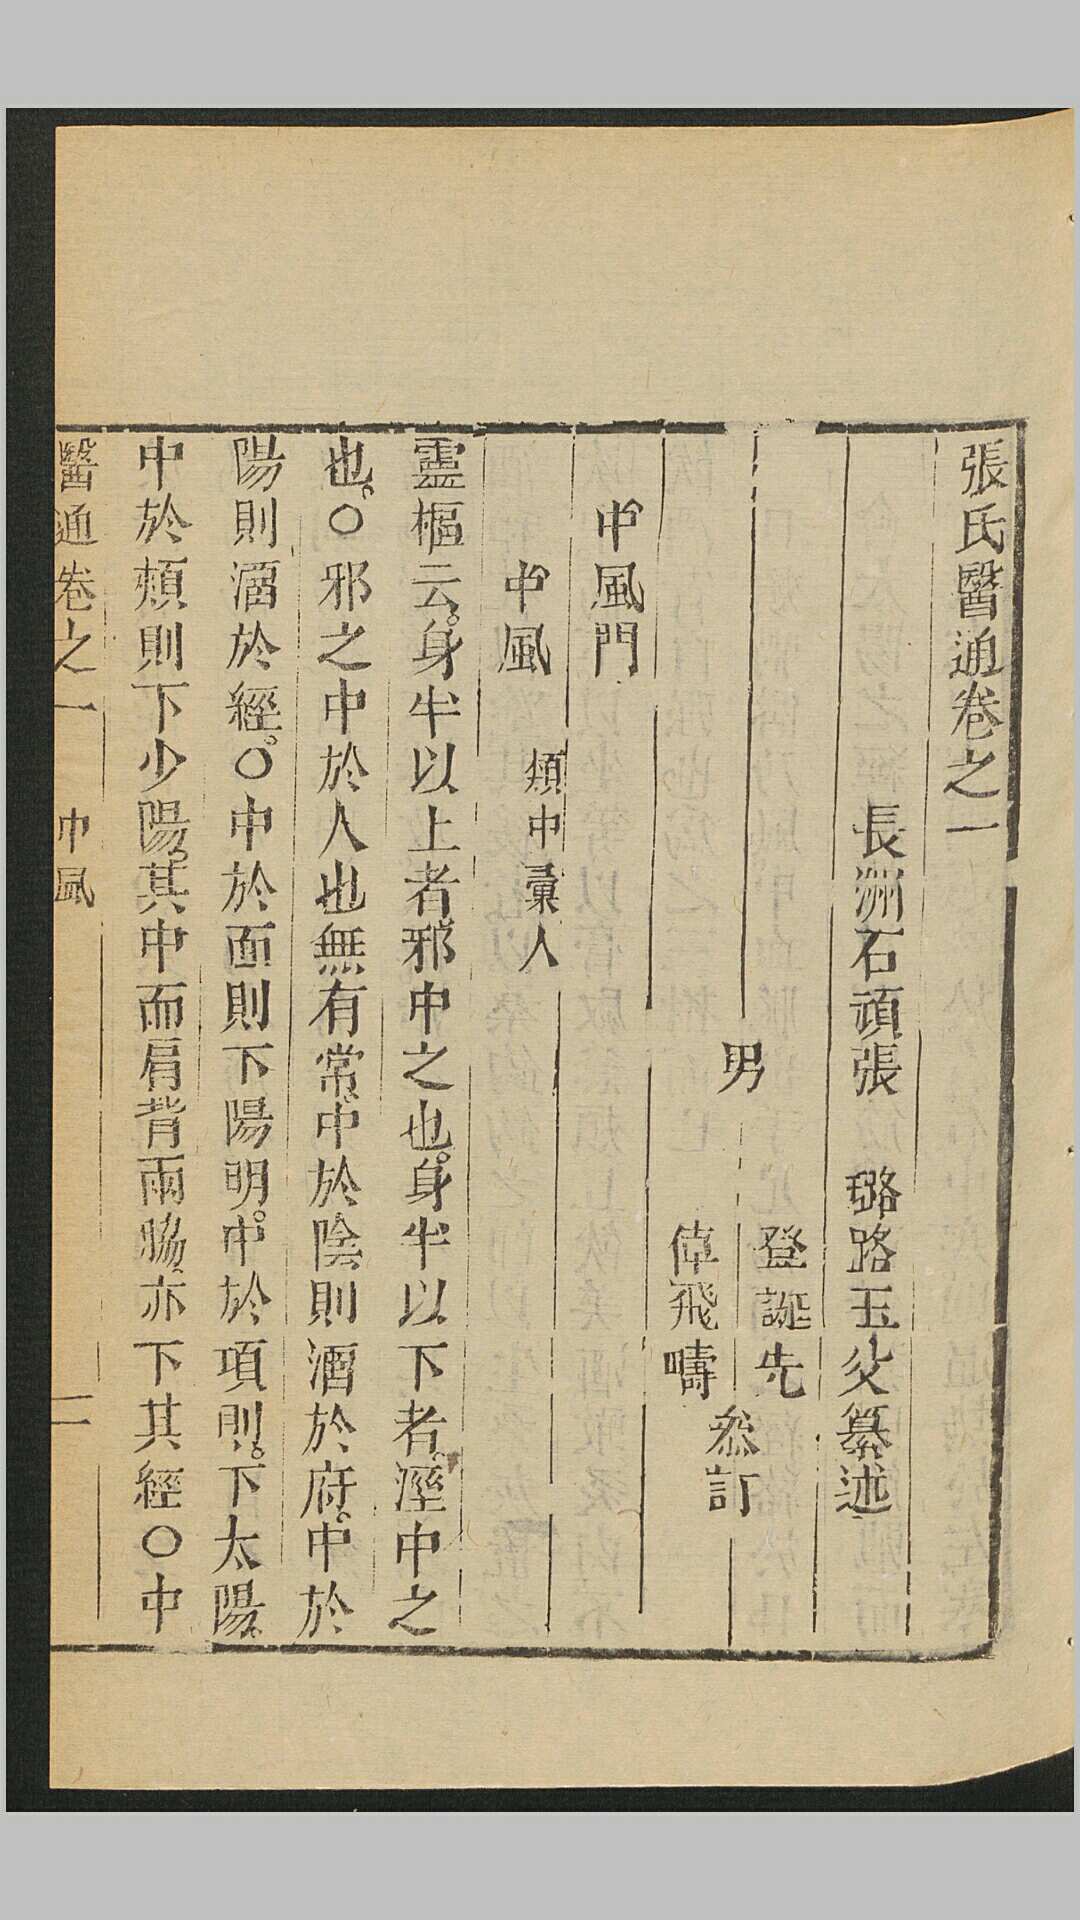 張氏醫通卷之一
長洲石頑張　璐路玉父纂述
男
登誕先
倬飛疇
叅訂
中風門
中風　類中彙入
靈樞云。身半以上者。邪中之也。身半以下者。溼中之
也。○邪之中於人也無有常。中於陰則溜於府。中於
陽則溜於經。○中於面則下陽明。中於項則。下太陽。
中於頰則下少陽。其中而肩背兩脇。亦下其經○中
醫通卷之一　中風　一